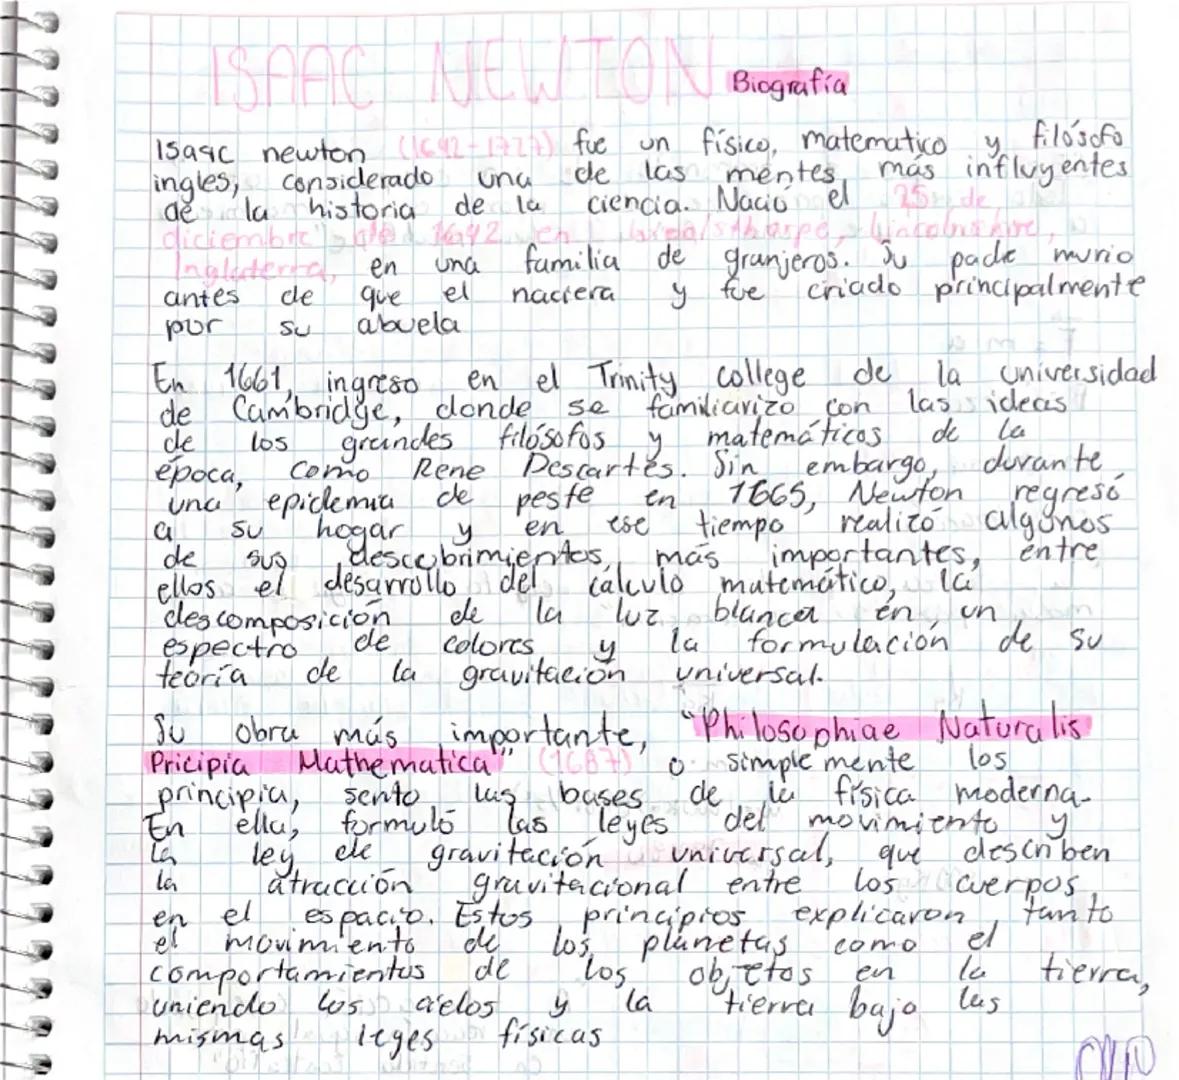 ISAAC NEWTON Biografía
Isaac newton (1642-1727) fue un físico, matematico y filósofo
ingles, considerado una de las mentes más influyentes
de la historia de la ciencia. Nació el 25 de
diciembre de 1642 en Lincolnshire,
Inglaterra, en una familia de granjeros. Su padre murio
antes de que el naciera y fue criado principalmente
por su abuela
En 1661, ingreso en el Trinity college de la universidad
de Cambridge, donde se familiarizo con las ideas
de los grandes filósofos y matemáticos de la
época, como Rene Descartes. Sin embargo, durante
una epidemia de peste en 1665, Newton regresó
a su hogar y en ese tiempo realizó algunos
de sus descubrimientos, más importantes, entre
ellos el desarrollo del cálculo matemático, la
descomposición de la luz blanca en un
espectro de colores y la formulación de su
teoría de la gravitación universal.
Su obra más importante, "Philosophiae Naturalis
Pricipia Mathematica" (1687) o simplemente los
principia, sento las bases de la física moderna.
En ella, formuló las leyes del movimiento y
la ley de gravitación universal, que describen
la atracción gravitacional entre los cuerpos
en el espacio. Estos principios explicaron tanto
el movimiento de los planetas como el
comportamientos de los objetos en la tierra,
uniendo los cielos y la tierra bajo las
mismas leyes físicas